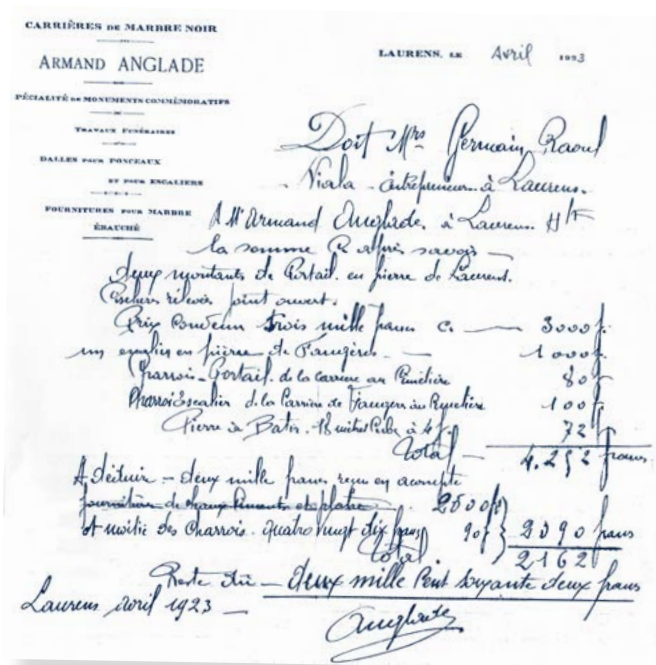 CARRIÈRES DE MARBRE NOIR
ARMAND ANGLADE
PÉCIALITÉ DE MONUMENTS COMMÉMORATIFS
TRAVAUX FUNÉRAIRES
DALLES POUR PONCEAUX
ET POUR ESCALIERS
FOURNITURES POUR MARBRE
ÉBAUCHÉ
LAURENS, LE Avril 1923
Doit Mrs Germain Raoul
Viala entrepreneur à Laurens.
A Mr Armand Anglade à Laurens Hlt
la somme Ci après savoir
deux montants de Portail en pierre de Laurens.
relevés joint ouvert.
Prix Convenu trois mille francs c. 3000 f.
un escalier en pierre de Faugères. 1000 f.
Charrois Portail de la Carrière au Cimetière 80 f
Charroi Escalier de la Carrière de Faugères au Cimetière 100 f
Pierre à Batir 18 mètres Cube à 4 f. 72 f.
Total 4.252 francs
A déduire deux mille francs reçu en acompte
fourniture de chaux Ciments et platre 2000 f
et moitié des Charrois quatre vingt dix francs 90 f } 2090 francs
Total 2162
Reste dû deux mille Cent soixante deux francs
Laurens avril 1923
Anglade